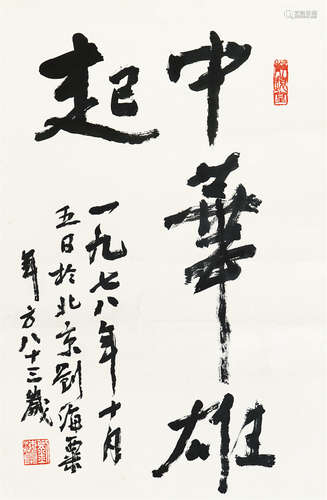 中華雄
起
一九七八年十月
五日於北京劉海粟
年方八十三歲